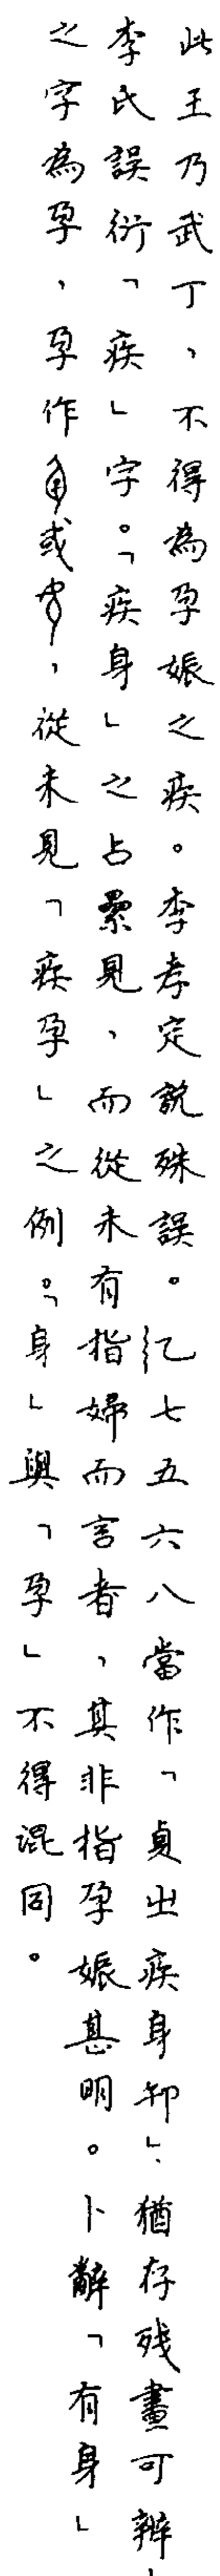 此王乃武丁，不得為孕娠之疾。李孝定說殊誤。乙七五六八當作「貞㞢疾身卸」，猶存殘畫可辨，
李氏誤衍「疾」字。「疾身」之占纍見，而從未有指婦而言者，其非指孕娠甚明。卜辭「有身」
之字為孕，孕作或，從未見「疾孕」之例。「身」與「孕」不得混同。